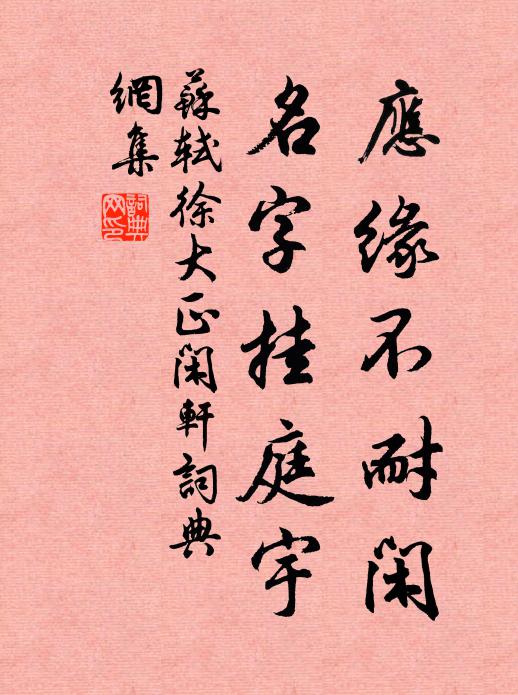 應緣不耐閑
名字挂庭宇
蘇軾徐大正閑軒詞典
網集
詞典
网印